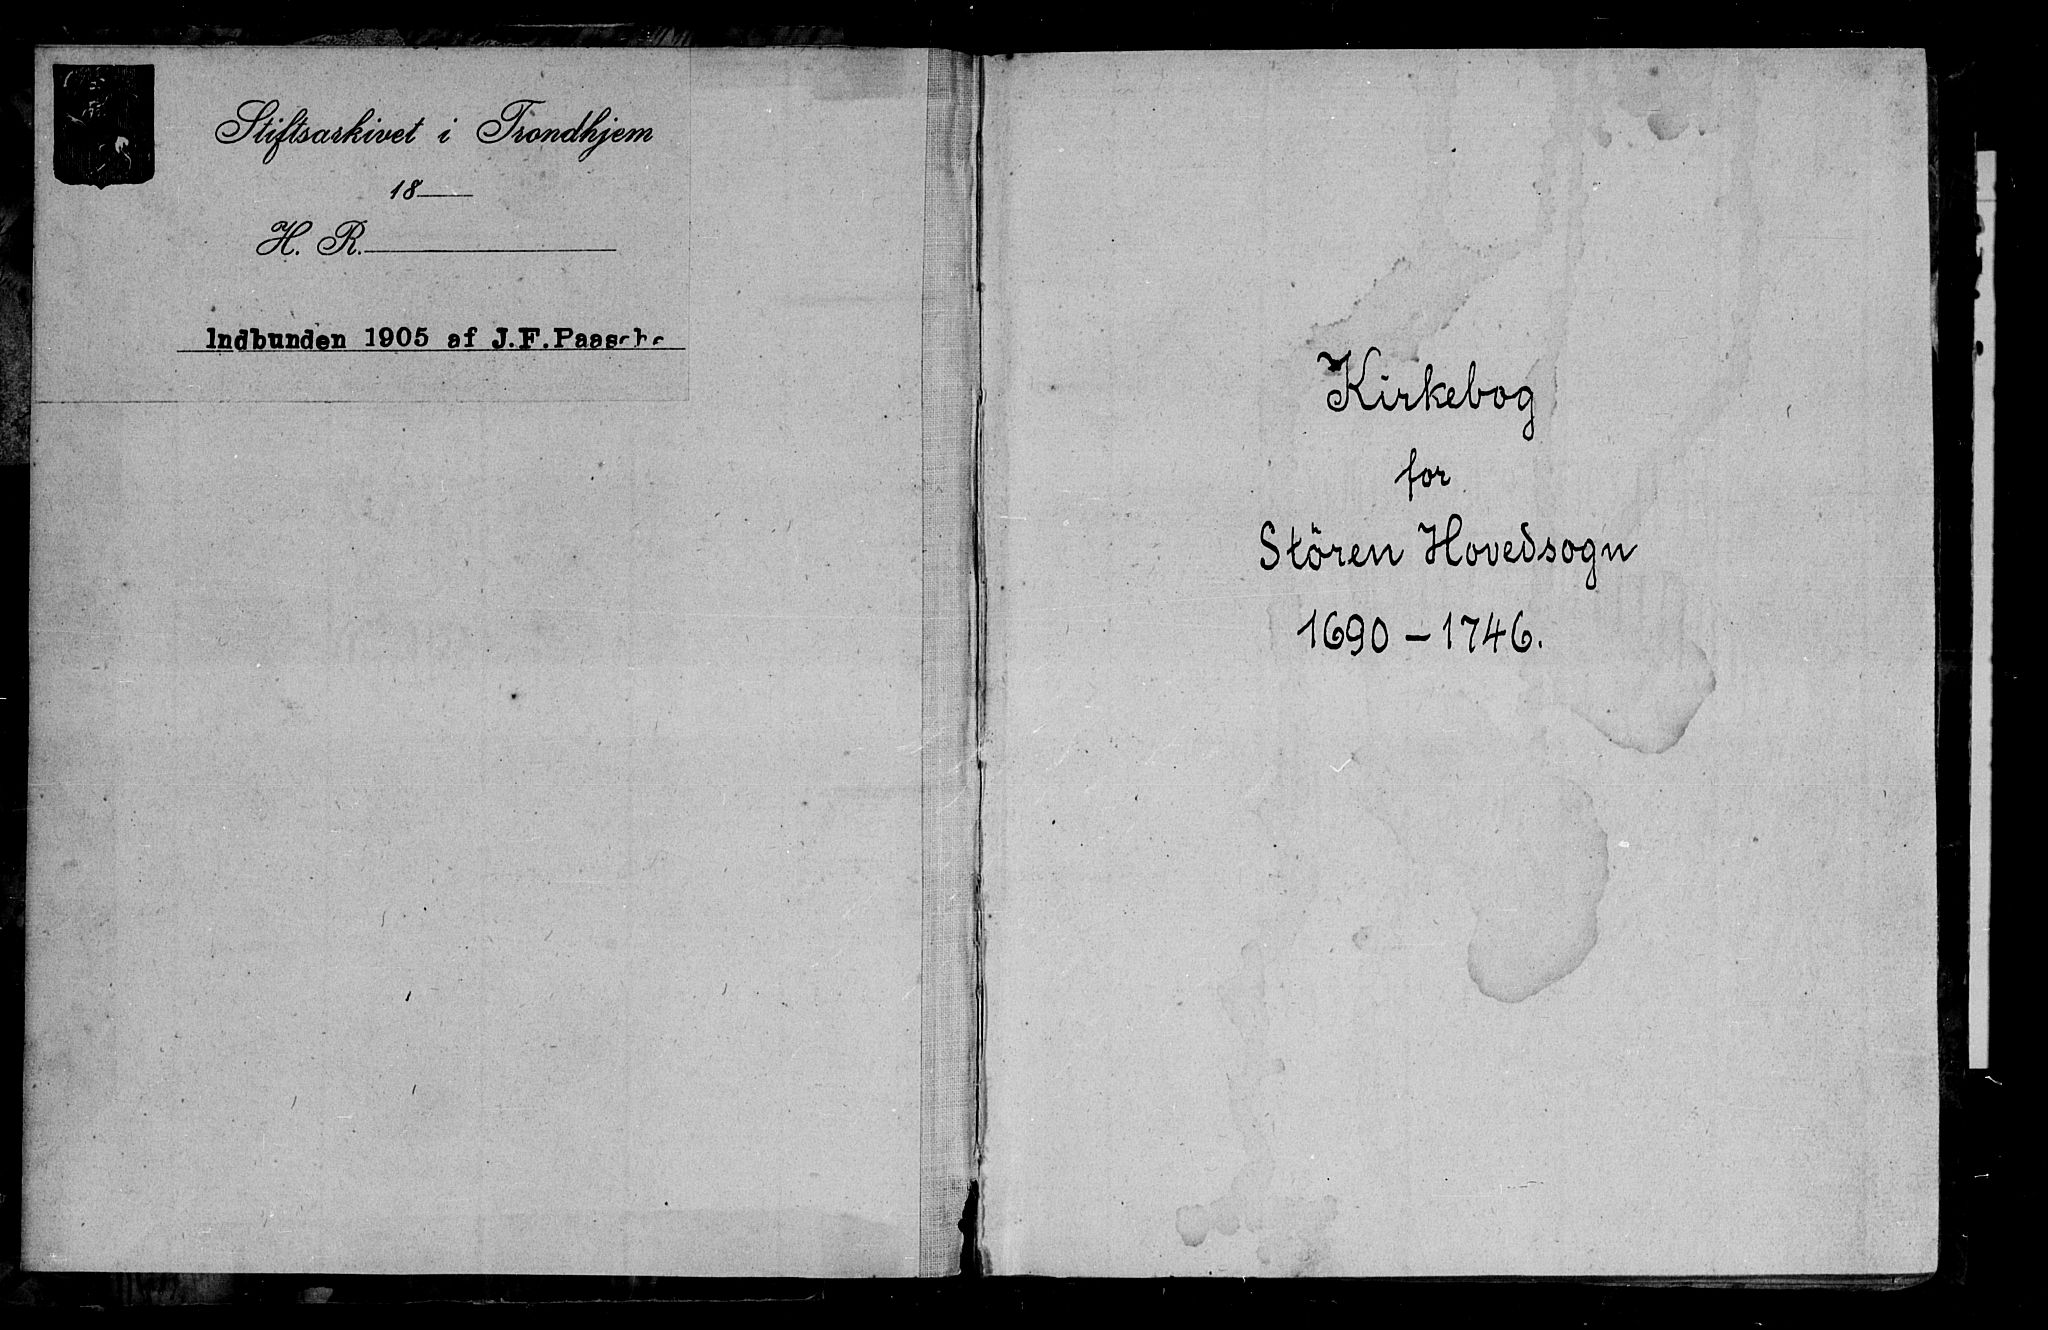 Stiftsarkivet i Trondhjem
18
H. R.
Indbunden 1905 af J.F.Paasche
Kirkebog
for
Stören Hovedsogn
1690 – 1746.